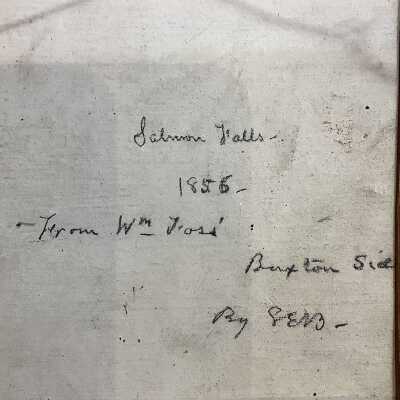 Salmon Falls -
1856 -
- From Wm Foss'
Buxton Side
By GEND -